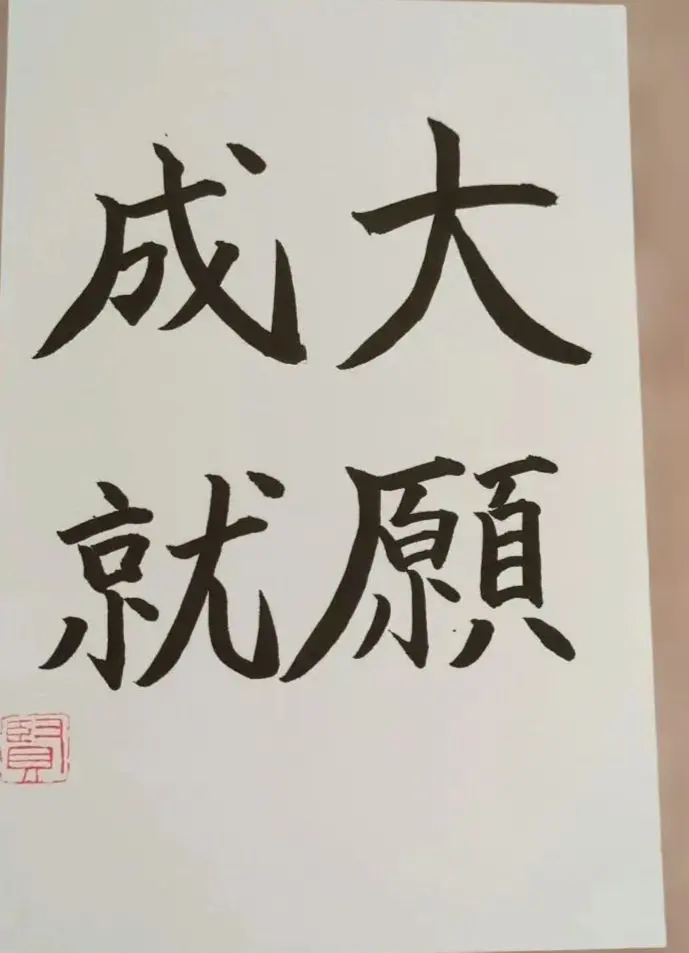 大願
成就
賢